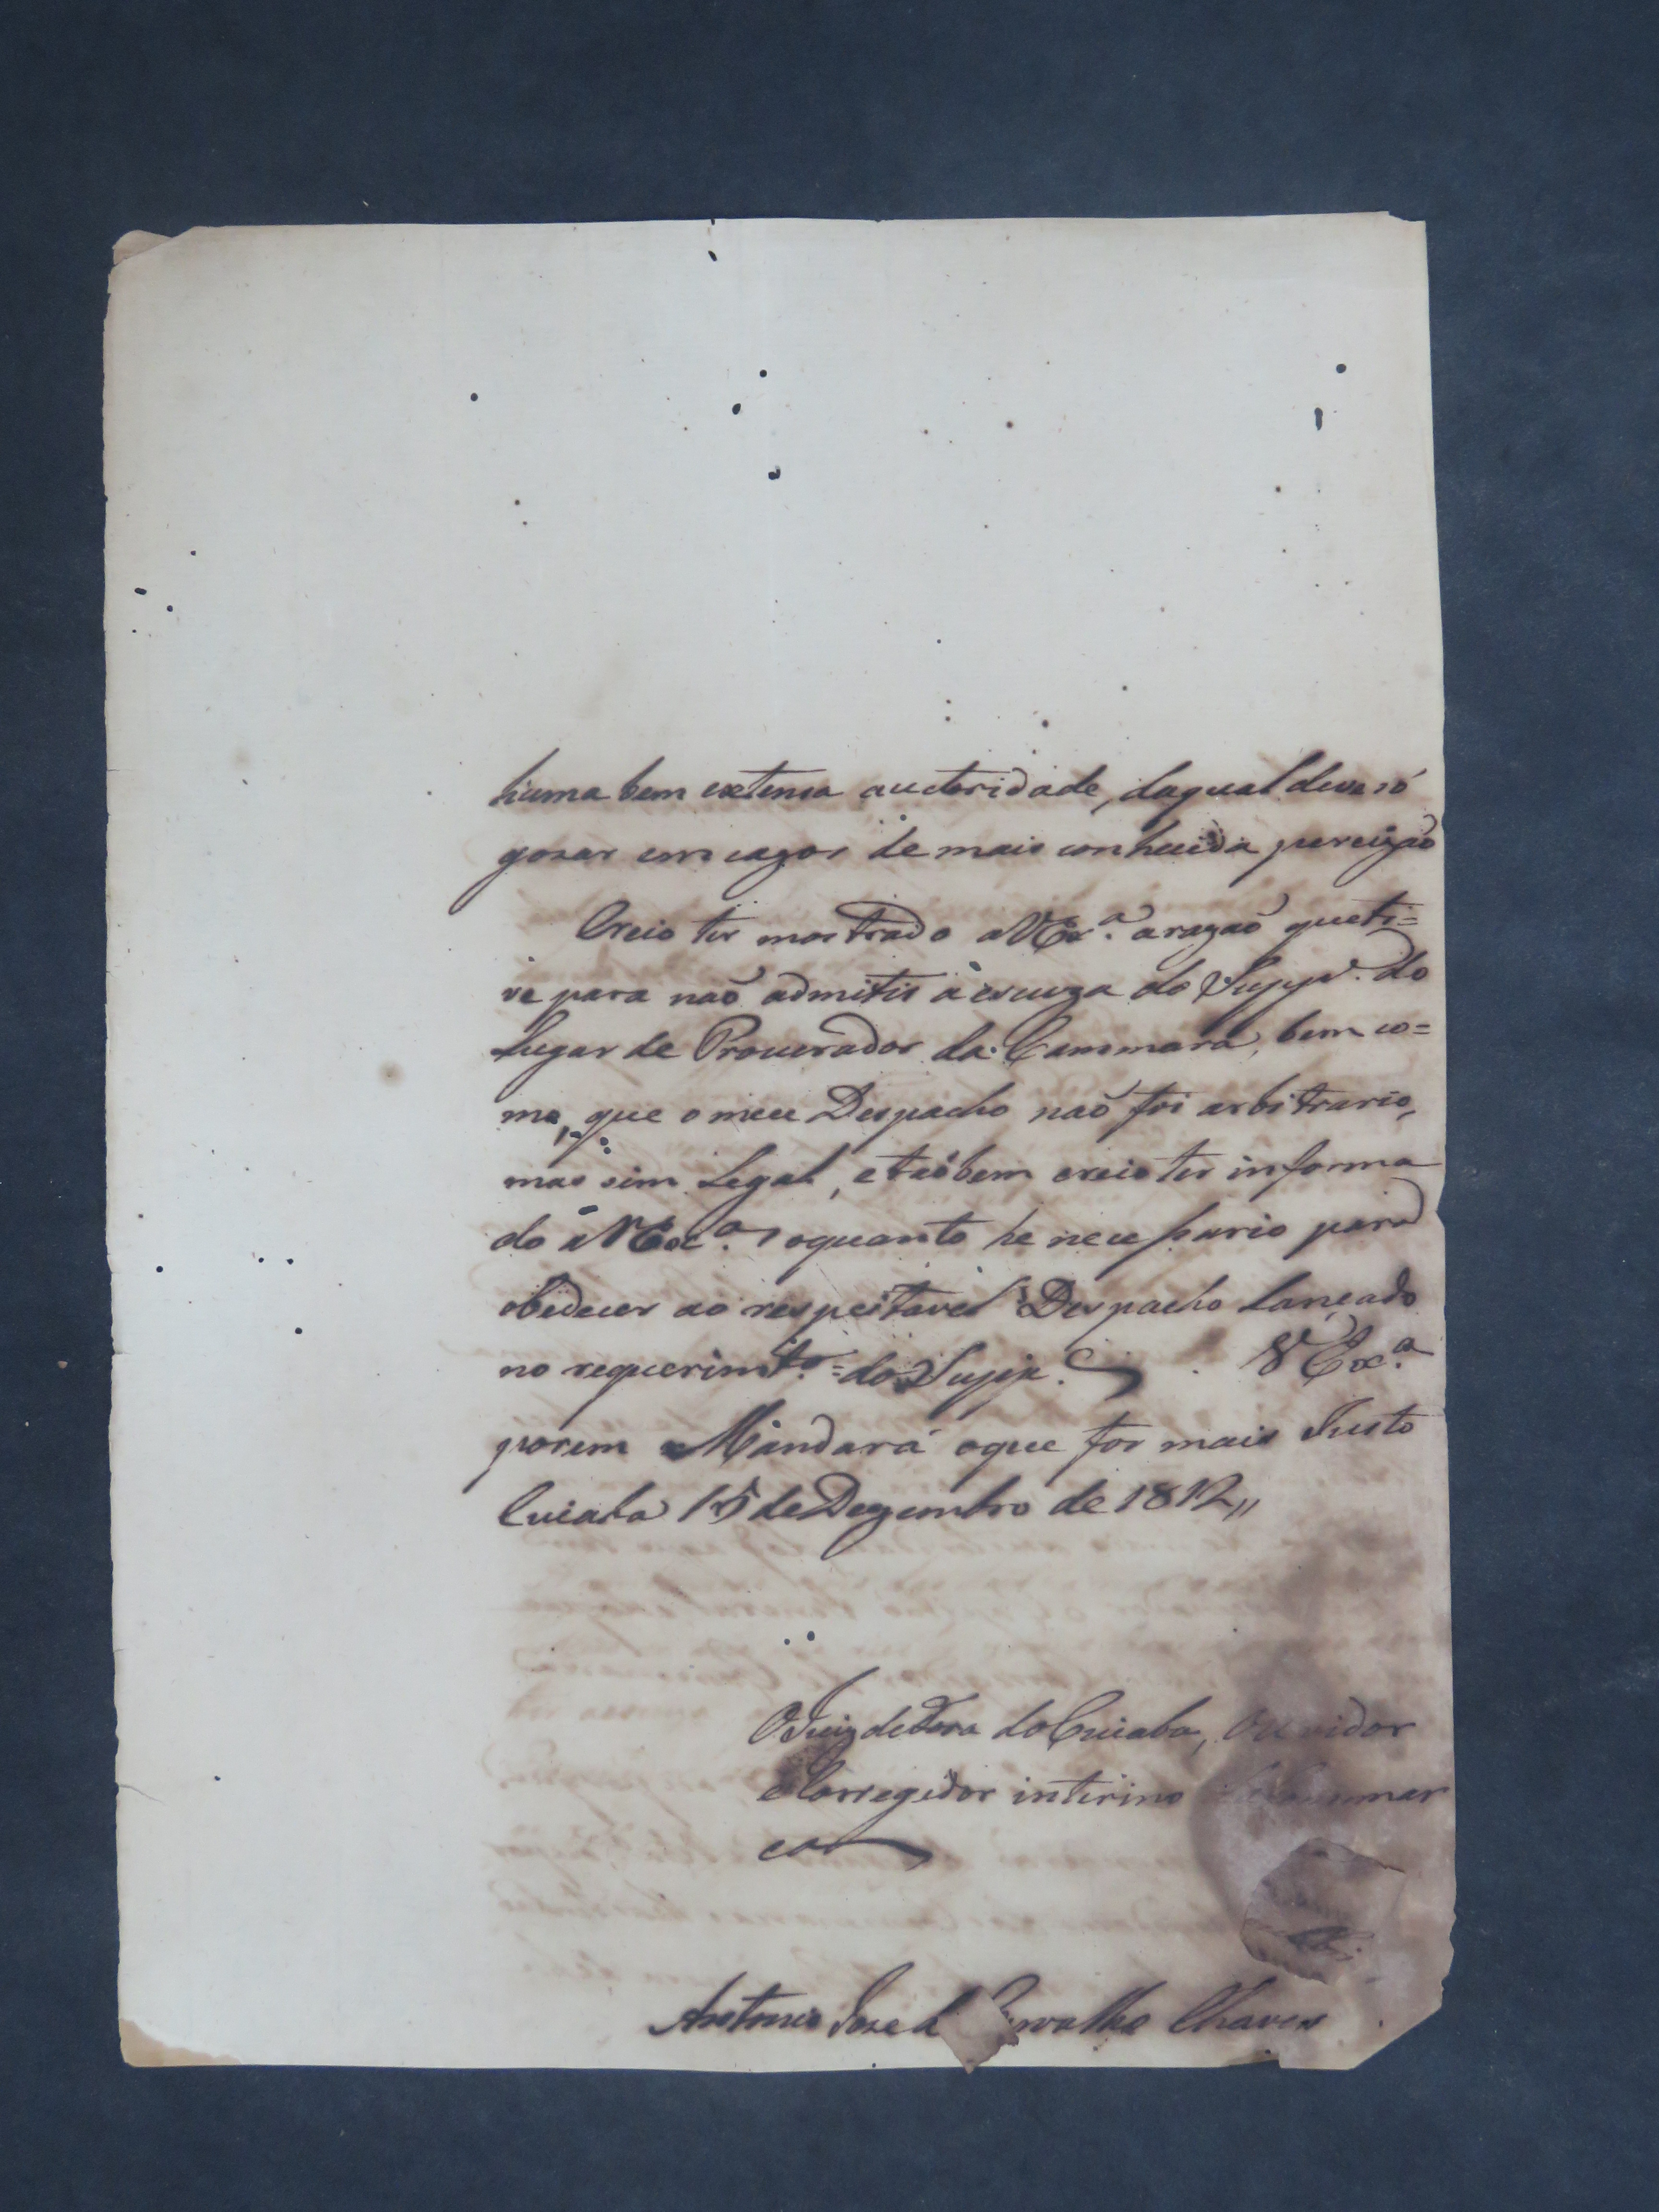 huma bem extensa auctoridade, daqual deve só
gozar em cazos de mais conhecida percizaõ
Creio ter mostrado a V Ex.ª arazaõ queti=
ve para naõ admitir á escuza do Supp.e do
Lugar de Procurador da Cammara, bem co=
mo, que o meu Despacho naõ foi arbitrario,
mas sim Legal, e taõbem creio ter informa
do a V Ex.ª oquanto he necessario para
obedecer ao respeitavel Despacho Lançado
no requerimt.o = do Supp.e V Ex.ª
porem Mandará oque for mais Justo
Cuiaba 15 de Dezembro de 1812,,
OJuiz deFora do Cuiaba, Ouvidor
eCorregedor interino Commar
ca
Antonio Joze d Carvalho Chaves